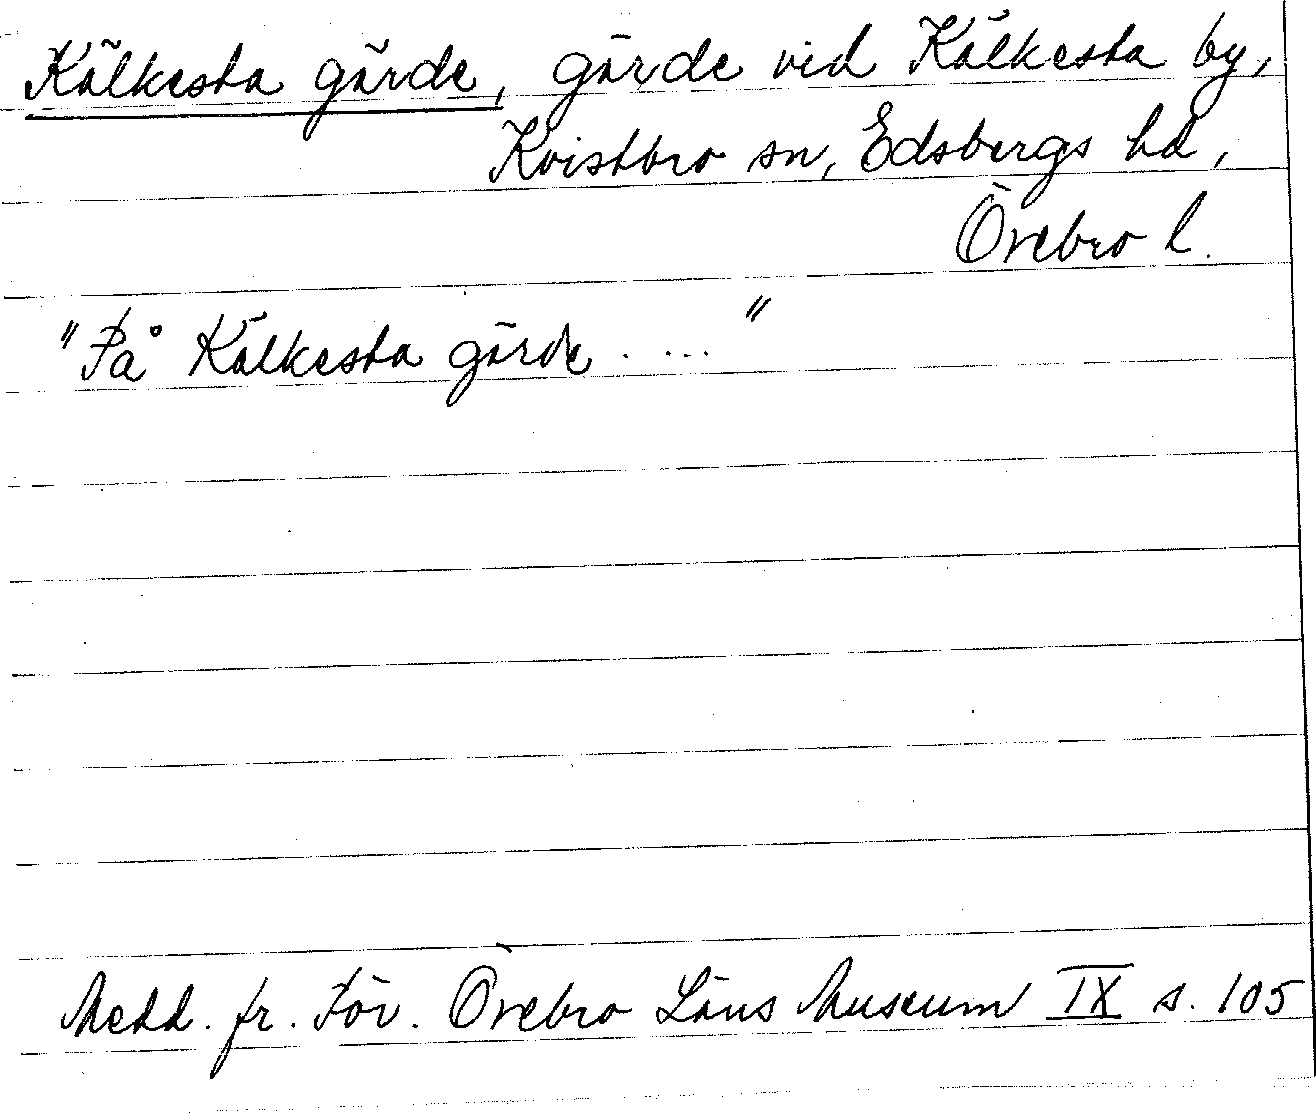 Kälkesta gärde, gärde vid Kälkesta by,
Kvistbro sn, Edsbergs hd,
Örebro l.
"På Kälkesta gärde....."
Medd. fr. För. Örebro Läns Museum IX s. 105